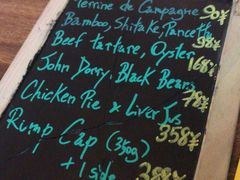 Terrine de Campagne 90¥
Bamboo, Shitake, Pancetta 98¥
Beef tartare, Oyster 168¥
John Dorry, Black Beans 78¥
Chicken Pie & Liver Jus 358¥
Rump Cap (350g)
+ 1 side 388¥